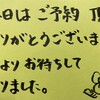 日は ご予約 頂
りがとうございま
より お待ちして
りました。